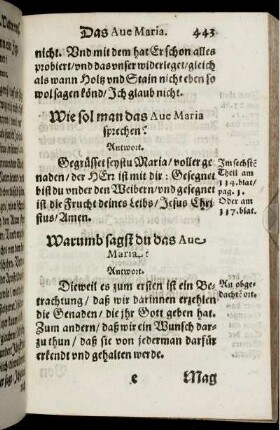 Das Aue Maria. 443
nicht. Vnd mit dem hat Er schon alles
probiert/vnd das vnser widerleget/gleich
als wann Holtz vnd Stain nicht eben so
wol sagen könd/Ich glaub nicht.
Wie sol man das Aue Maria
sprechen?
Antwort.
Gegrüsset seystu Maria/voller ge
naden/der HErr ist mit dir: Gesegnet
bist du vnder den Weibern/vnd gesegnet
ist die Frucht deines Leibs/Jesus Chri
stus/Amen.
Im sechste
Theil am
114.blat/
pag. 1.
Oder am
117.blat.
Warumb sagst du das Aue
Maria?
Antwort.
Dieweil es zum ersten ist ein Be-
trachtung/daß wir darinnen erzehlen
die Genaden/die jhr Gott geben hat.
Zum andern/daß wir ein Wunsch dar-
zu thun/daß sie von jederman darfür
erkendt vnd gehalten werde.
An obge-
dachtē ort.
e Mag